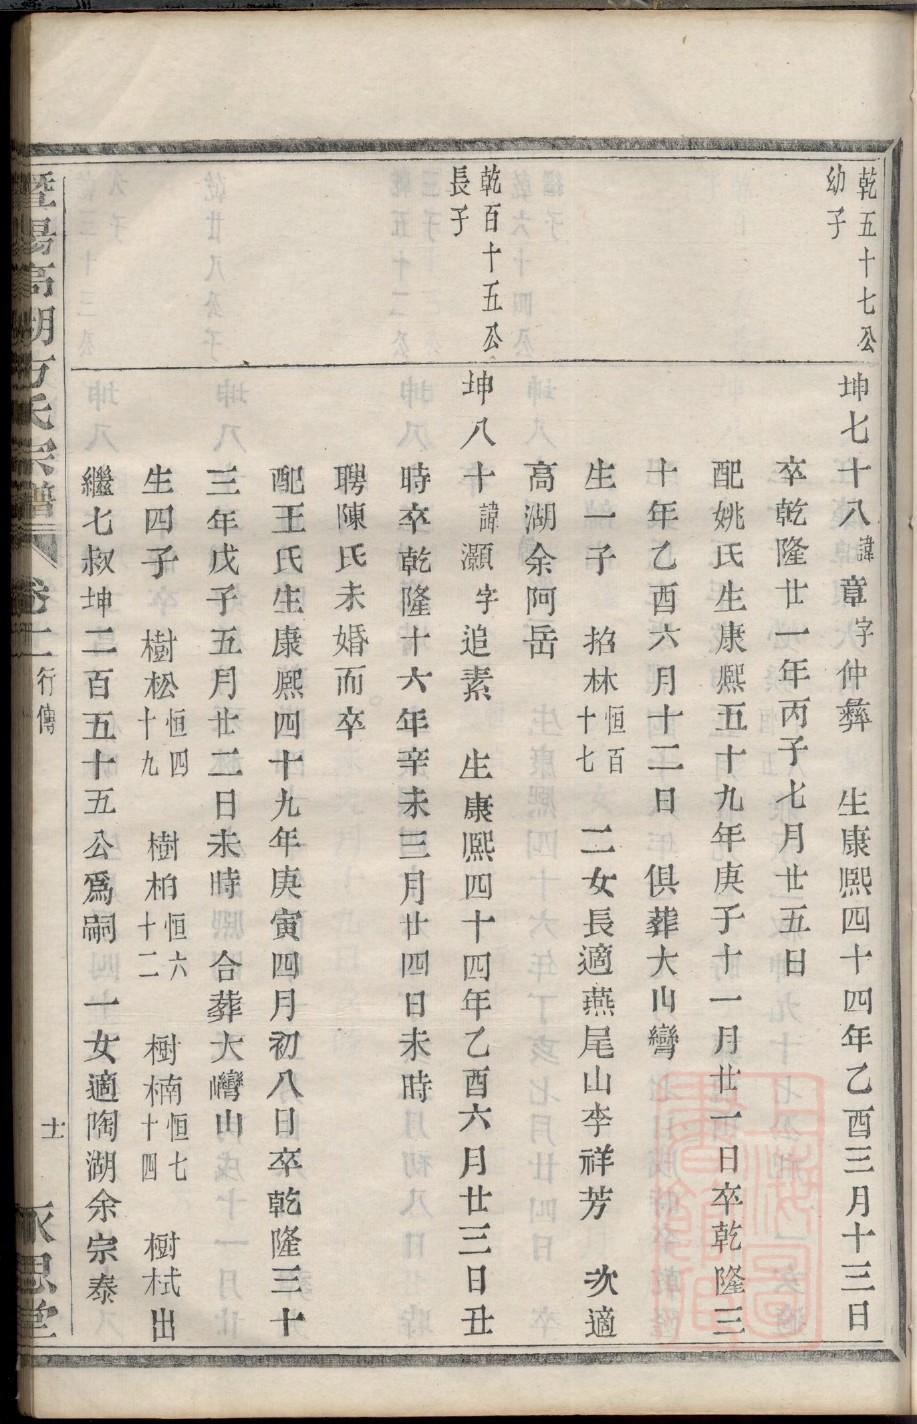 乾五十七公
幼子
坤七十八諱章字仲彝 生康熙四十四年乙酉三月十三日
卒乾隆廿一年丙子七月廿五日
配姚氏生康熙五十九年庚子十一月廿一日卒乾隆三
十年乙酉六月十二日 俱葬大山灣
生一子 招林恒百十七 二女長適燕尾山李祥芳 次適
高湖余阿岳
乾百十五公
長子
坤八十諱灝字追素 生康熙四十四年乙酉六月廿三日丑
時卒乾隆十六年辛未三月廿四日未時
聘陳氏未婚而卒
配王氏生康熙四十九年庚寅四月初八日卒乾隆三十
三年戊子五月廿二日未時 合葬大灣山
生四子 樹松恒四十九 樹柏恒六十二 樹楠恒七十四 樹栻出
繼七叔坤二百五十五公爲嗣 一女適陶湖余宗泰
暨陽高湖方氏宗譜 卷二 行傳 十一 永思堂